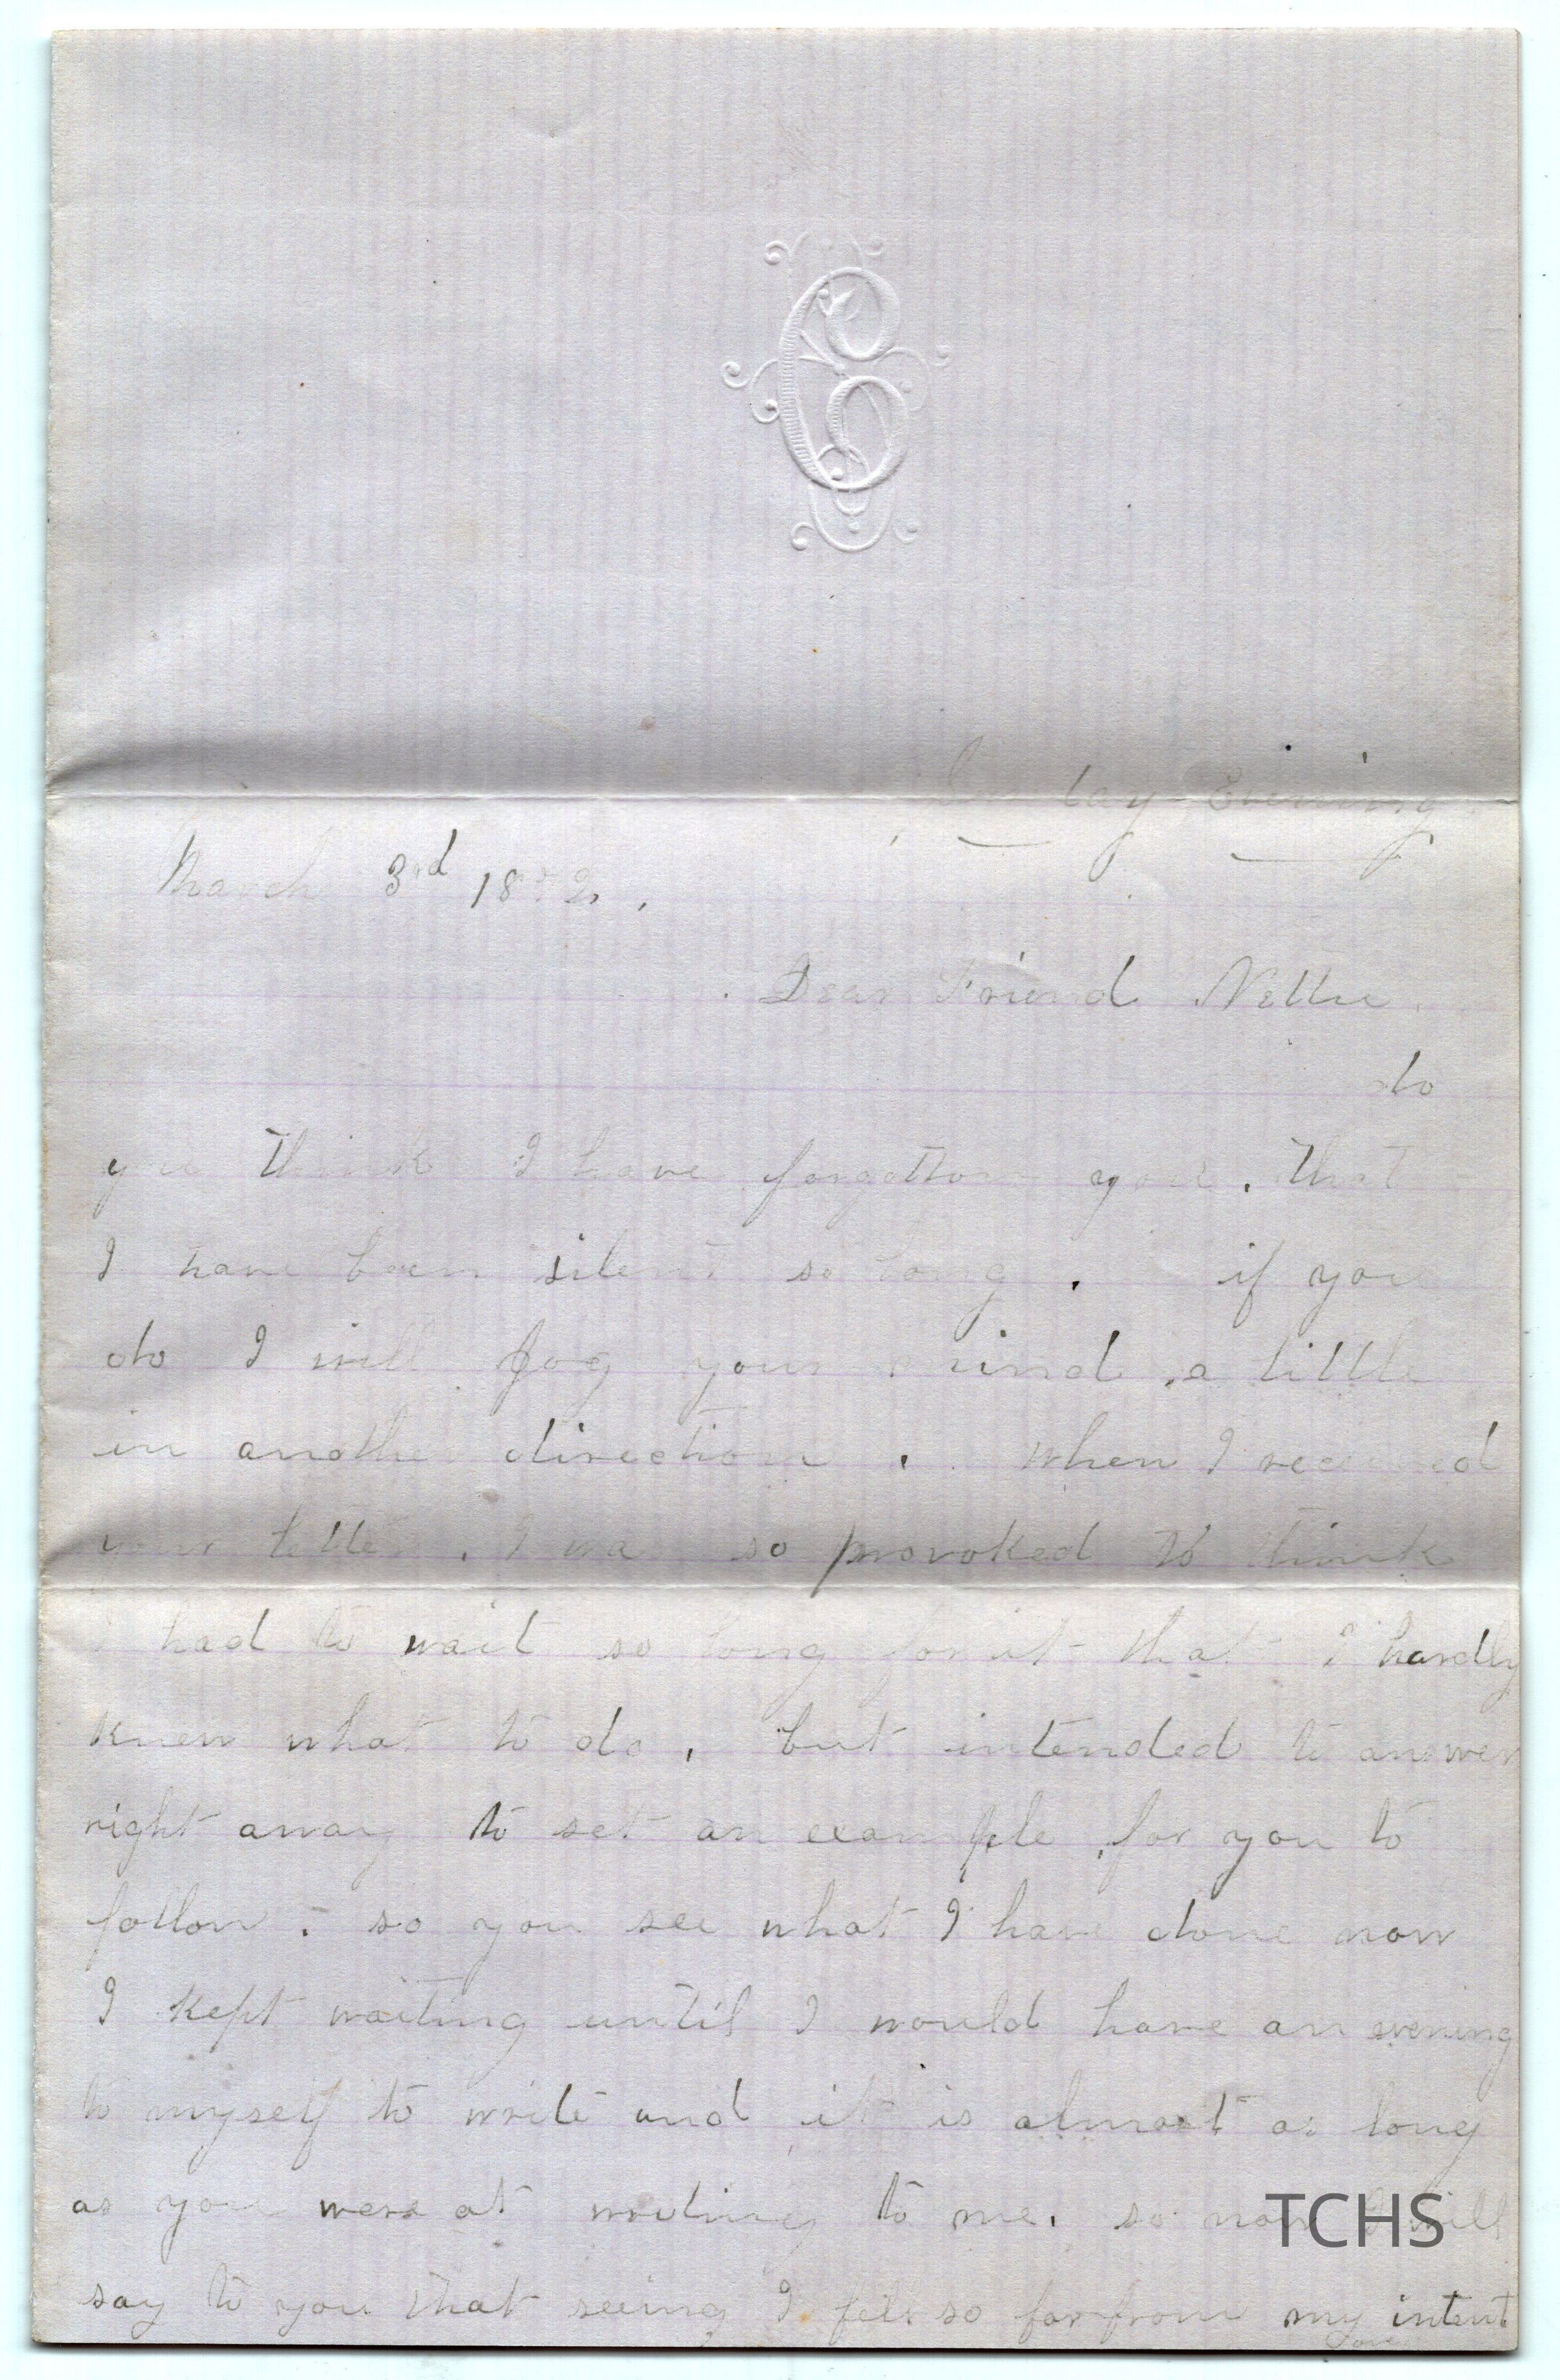 C
Sunday Evening
March 3rd 1872.
Dear Friend Nellie.
do
you think I have forgotton you. that
I have been silent so long. if you
do I will Jog your mind a little
in another direction. when I received
your letter. I was so provoked to think
I had to wait so long for it that I hardly
knew what to do. but intended to answer
right away to set an example for you to
follow. so you see what I have done now
I kept waiting until I would have an evening
to myself to write and it is almost as long
as you were at writing to me. so now I will
say to you that seeing I fell so far from my intent
TCHS